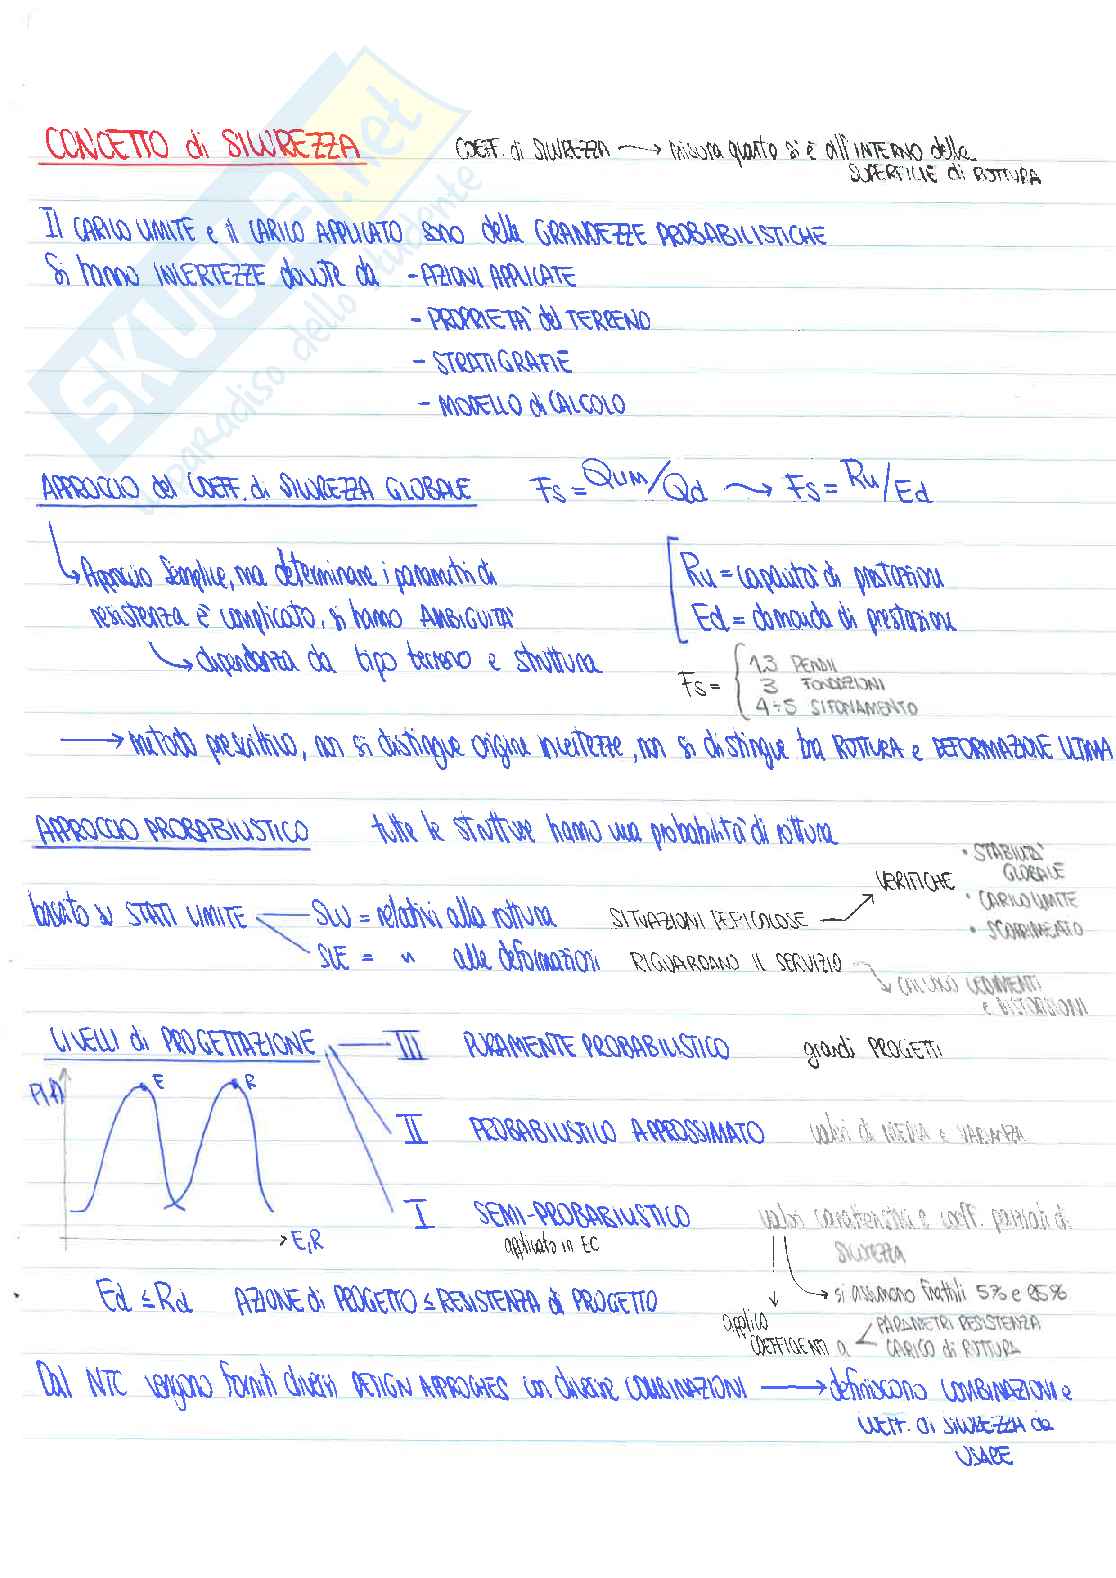 CONCETTO di SICUREZZA
COEFF. di SICUREZZA → misura quanto si è all'INTERNO della
SUPERFICIE di ROTTURA
Il CARICO LIMITE e il CARICO APPLICATO sono delle GRANDEZZE PROBABILISTICHE
Si hanno INCERTEZZE dovute da - AZIONI APPLICATE
- PROPRIETA' del TERRENO
- STRATIGRAFIE
- MODELLO di CALCOLO
APPROCCIO del COEFF. di SICUREZZA GLOBALE Fs = QLIM/Qd → Fs = Ru/Ed
Approccio semplice, ma determinare i parametri di
resistenza è complicato, si hanno AMBIGUITA'
→ dipendenza da tipo terreno e struttura
Ru = capacità di prestazioni
Ed = domanda di prestazioni
Fs = { 1,3 PENDII
3 FONDAZIONI
4÷5 SIFONAMENTO
→ metodo prescrittivo, non si distingue origine incertezze, non si distingue tra ROTTURA e DEFORMAZIONE ULTIMA
APPROCCIO PROBABILISTICO tutte le strutture hanno una probabilità di rottura
basato su STATI LIMITE
SLU = relativi alla rottura SITUAZIONI PERICOLOSE → VERIFICHE
• STABILITA' GLOBALE
• CARICO LIMITE
• SCORRIMENTO
SLE = " alle deformazioni RIGUARDANO IL SERVIZIO → CALCOLO CEDIMENTI
e DISTORSIONI
LIVELLI di PROGETTAZIONE
III PURAMENTE PROBABILISTICO grandi PROGETTI
II PROBABILISTICO APPROSSIMATO valori di MEDIA e VARIANZA
I SEMI-PROBABILISTICO valori caratteristici e coeff. parziali di
SICUREZZA
applicato in EC
E R
E,R
→ si assumono frattili 5% e 95%
applico
COEFFICIENTI a
PARAMETRI RESISTENZA
CARICO di ROTTURA
Ed ≤ Rd AZIONE di PROGETTO ≤ RESISTENZA di PROGETTO
Dal NTC vengono forniti diversi DESIGN APPROCHES con diverse COMBINAZIONI → definiscono COMBINAZIONI e
COEFF. di SICUREZZA da
USARE
SKUOLA.net
il paradiso dello studente